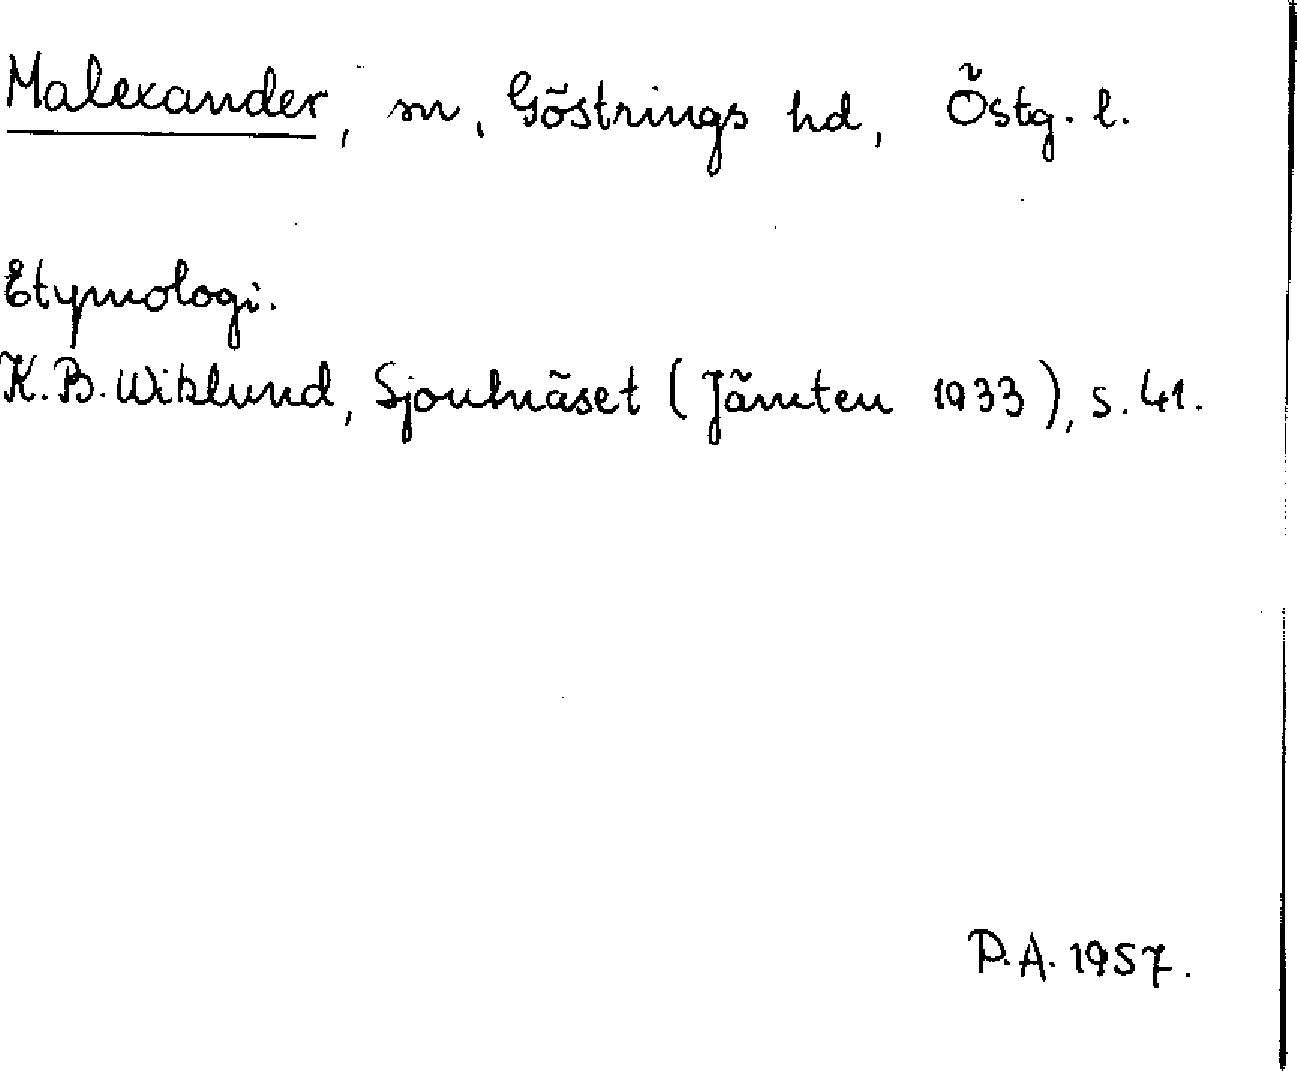 Malexander, sn, Göstrings hd, Östg. l.
Etymologi.
K.B. Wiklund, Sjoutnäset (Jämten 1933), s. 41.
P.A. 1957.